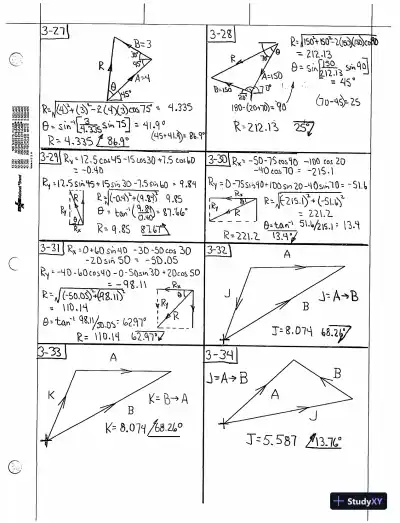 3-27
B=3
R
A=4
θ
45°
R=√(4)²+(3)²-2(4)(3)cos75 = 4.335
θ=sin⁻¹[3/4.335 sin75]=41.9°
(45+41.9)=86.9°
R=4.335 86.9°
3-28
R=√150²+150²-2(150)(150)cos90
=212.13
θ=sin[150/212.13 sin90]
=45°
A=150
B=150
70°
R
θ
180-(20+70)=90
(70-45)=25
R=212.13 25°
3-29
Rx=12.5cos45-15cos30+7.5cos60
=-0.40
Ry=12.5sin45+15sin30-7.5sin60=9.84
R=√(-0.4)²+(9.84)² 9.85
θ=tan⁻¹(9.84/0.40)=87.66°
Ry
R
θ
Rx
R=9.85 87.67°
3-30
Rx=-50-75cos90-100cos20
-40cos70=-215.1
Ry=0-75sin90+100sin20-40sin70=-51.6
R=√(-215.1)²+(-51.6)²
=221.2
θ=tan⁻¹ 51.6/215.1=13.4
Rx
Ry
R
R=221.2 13.4°
3-31
Rx=0+60sin40-30-50cos30
-20sin50=-50.05
Ry=-40-60cos40-0-50sin30+20cos50
=-98.11
R=√(-50.05)²+(98.11)²
=110.14
θ=tan⁻¹ 98.11/50.05=62.97°
Rx
θ
Ry
R
R=110.14 62.97°
3-32
A
J
B
J=A→B
J=8.074 68.26°
3-33
A
K
B
K=B→A
K=8.074 68.26°
3-34
J=A→B
A
B
J
J=5.587 13.76°
StudyXY